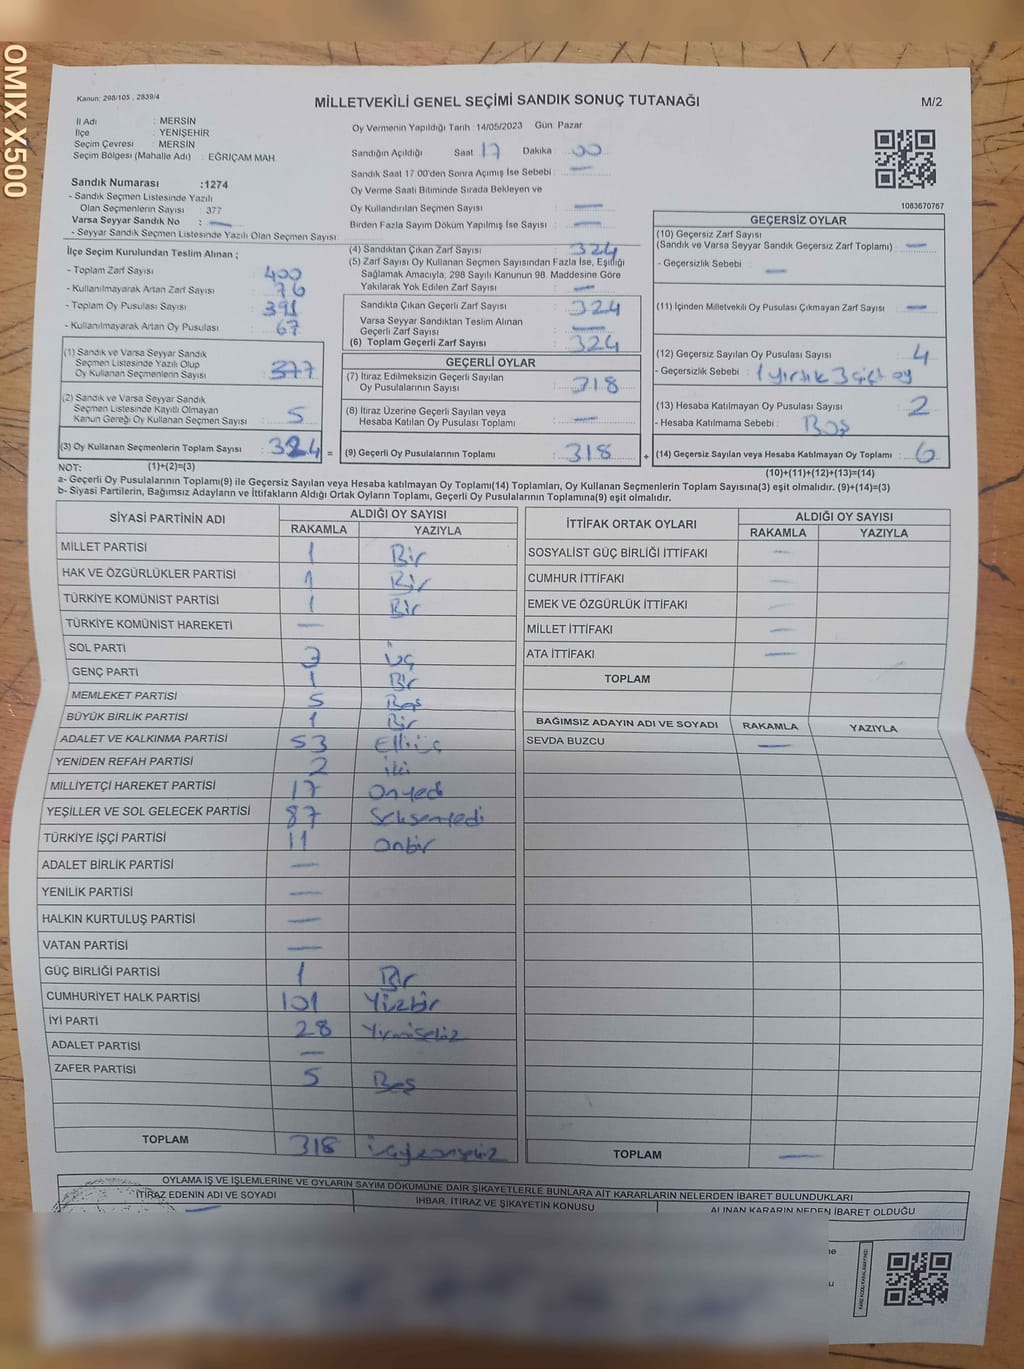 OMIX X500
Kanun: 298/105 , 2839/4
MİLLETVEKİLİ GENEL SEÇİMİ SANDIK SONUÇ TUTANAĞI
M/2
İl Adı : MERSİN
İlçe : YENİŞEHİR
Seçim Çevresi : MERSİN
Seçim Bölgesi (Mahalle Adı) : EĞRİÇAM MAH.
Sandık Numarası :1274
- Sandık Seçmen Listesinde Yazılı
Olan Seçmenlerin Sayısı : 377
Varsa Seyyar Sandık No : —
- Seyyar Sandık Seçmen Listesinde Yazılı Olan Seçmen Sayısı:
Oy Vermenin Yapıldığı Tarih :14/05/2023 Gün: Pazar
Sandığın Açıldığı Saat 17 Dakika 00
Sandık Saat 17 00'den Sonra Açımış İse Sebebi : —
Oy Verme Saati Bitiminde Sırada Bekleyen ve
Oy Kullandırılan Seçmen Sayısı : —
Birden Fazla Sayım Döküm Yapılmış İse Sayısı : —
1083670767
İlçe Seçim Kurulundan Teslim Alınan ;
- Toplam Zarf Sayısı : 400
- Kullanılmayarak Artan Zarf Sayısı : 76
- Toplam Oy Pusulası Sayısı : 391
- Kullanılmayarak Artan Oy Pusulası : 67
(1) Sandık ve Varsa Seyyar Sandık
Seçmen Listesinde Yazılı Olup
Oy Kullanan Seçmenlerin Sayısı : 377
(2) Sandık ve Varsa Seyyar Sandık
Seçmen Listesinde Kayıtlı Olmayan
Kanun Gereği Oy Kullanan Seçmen Sayısı : 5
(3) Oy Kullanan Seçmenlerin Toplam Sayısı : 324 =
(4) Sandıktan Çıkan Zarf Sayısı : 324
(5) Zarf Sayısı Oy Kullanan Seçmen Sayısından Fazla İse, Eşitliği
Sağlamak Amacıyla, 298 Sayılı Kanunun 98. Maddesine Göre
Yakılarak Yok Edilen Zarf Sayısı : —
Sandıkta Çıkan Geçerli Zarf Sayısı : 324
Varsa Seyyar Sandıktan Teslim Alınan
Geçerli Zarf Sayısı : —
(6) Toplam Geçerli Zarf Sayısı : 324
GEÇERLİ OYLAR
(7) İtiraz Edilmeksizin Geçerli Sayılan
Oy Pusulalarının Sayısı : 318
(8) İtiraz Üzerine Geçerli Sayılan veya
Hesaba Katılan Oy Pusulası Toplamı : —
(9) Geçerli Oy Pusulalarının Toplamı : 318 +
GEÇERSİZ OYLAR
(10) Geçersiz Zarf Sayısı
(Sandık ve Varsa Seyyar Sandık Geçersiz Zarf Toplamı) : —
- Geçersizlik Sebebi : —
(11) İçinden Milletvekili Oy Pusulası Çıkmayan Zarf Sayısı : —
(12) Geçersiz Sayılan Oy Pusulası Sayısı : 4
- Geçersizlik Sebebi : 1 yırtık 3 çift oy
(13) Hesaba Katılmayan Oy Pusulası Sayısı : 2
- Hesaba Katılmama Sebebi : Boş
(14) Geçersiz Sayılan veya Hesaba Katılmayan Oy Toplamı : 6
NOT: (1)+(2)=(3)
(10)+(11)+(12)+(13)=(14)
a- Geçerli Oy Pusulalarının Toplamı(9) ile Geçersiz Sayılan veya Hesaba katılmayan Oy Toplamı(14) Toplamları, Oy Kullanan Seçmenlerin Toplam Sayısına(3) eşit olmalıdır. (9)+(14)=(3)
b- Siyasi Partilerin, Bağımsız Adayların ve İttifakların Aldığı Ortak Oyların Toplamı, Geçerli Oy Pusulalarının Toplamına(9) eşit olmalıdır.
SİYASİ PARTİNİN ADI ALDIĞI OY SAYISI
RAKAMLA YAZIYLA
MİLLET PARTİSİ 1 Bir
HAK VE ÖZGÜRLÜKLER PARTİSİ 1 Bir
TÜRKİYE KOMÜNİST PARTİSİ 1 Bir
TÜRKİYE KOMÜNİST HAREKETİ —
SOL PARTİ 3 üç
GENÇ PARTİ 1 Bir
MEMLEKET PARTİSİ 5 Beş
BÜYÜK BİRLİK PARTİSİ 1 Bir
ADALET VE KALKINMA PARTİSİ 53 Elliüç
YENİDEN REFAH PARTİSİ 2 iki
MİLLİYETÇİ HAREKET PARTİSİ 17 Onyedi
YEŞİLLER VE SOL GELECEK PARTİSİ 87 Seksenyedi
TÜRKİYE İŞÇİ PARTİSİ 11 Onbir
ADALET BİRLİK PARTİSİ —
YENİLİK PARTİSİ —
HALKIN KURTULUŞ PARTİSİ —
VATAN PARTİSİ —
GÜÇ BİRLİĞİ PARTİSİ 1 Bir
CUMHURİYET HALK PARTİSİ 101 Yüzbir
İYİ PARTİ 28 Yirmisekiz
ADALET PARTİSİ —
ZAFER PARTİSİ 5 Beş
TOPLAM 318 üçyüzonsekiz
İTTİFAK ORTAK OYLARI ALDIĞI OY SAYISI
RAKAMLA YAZIYLA
SOSYALİST GÜÇ BİRLİĞİ İTTİFAKI —
CUMHUR İTTİFAKI —
EMEK VE ÖZGÜRLÜK İTTİFAKI —
MİLLET İTTİFAKI —
ATA İTTİFAKI —
TOPLAM
BAĞIMSIZ ADAYIN ADI VE SOYADI RAKAMLA YAZIYLA
SEVDA BUZCU —
TOPLAM —
OYLAMA İŞ VE İŞLEMLERİNE VE OYLARIN SAYIM DÖKÜMÜNE DAİR ŞİKAYETLERLE BUNLARA AİT KARARLARIN NELERDEN İBARET BULUNDUKLARI
İTİRAZ EDENİN ADI VE SOYADI İHBAR, İTİRAZ VE ŞİKAYETİN KONUSU ALINAN KARARIN NEDEN İBARET OLDUĞU
—